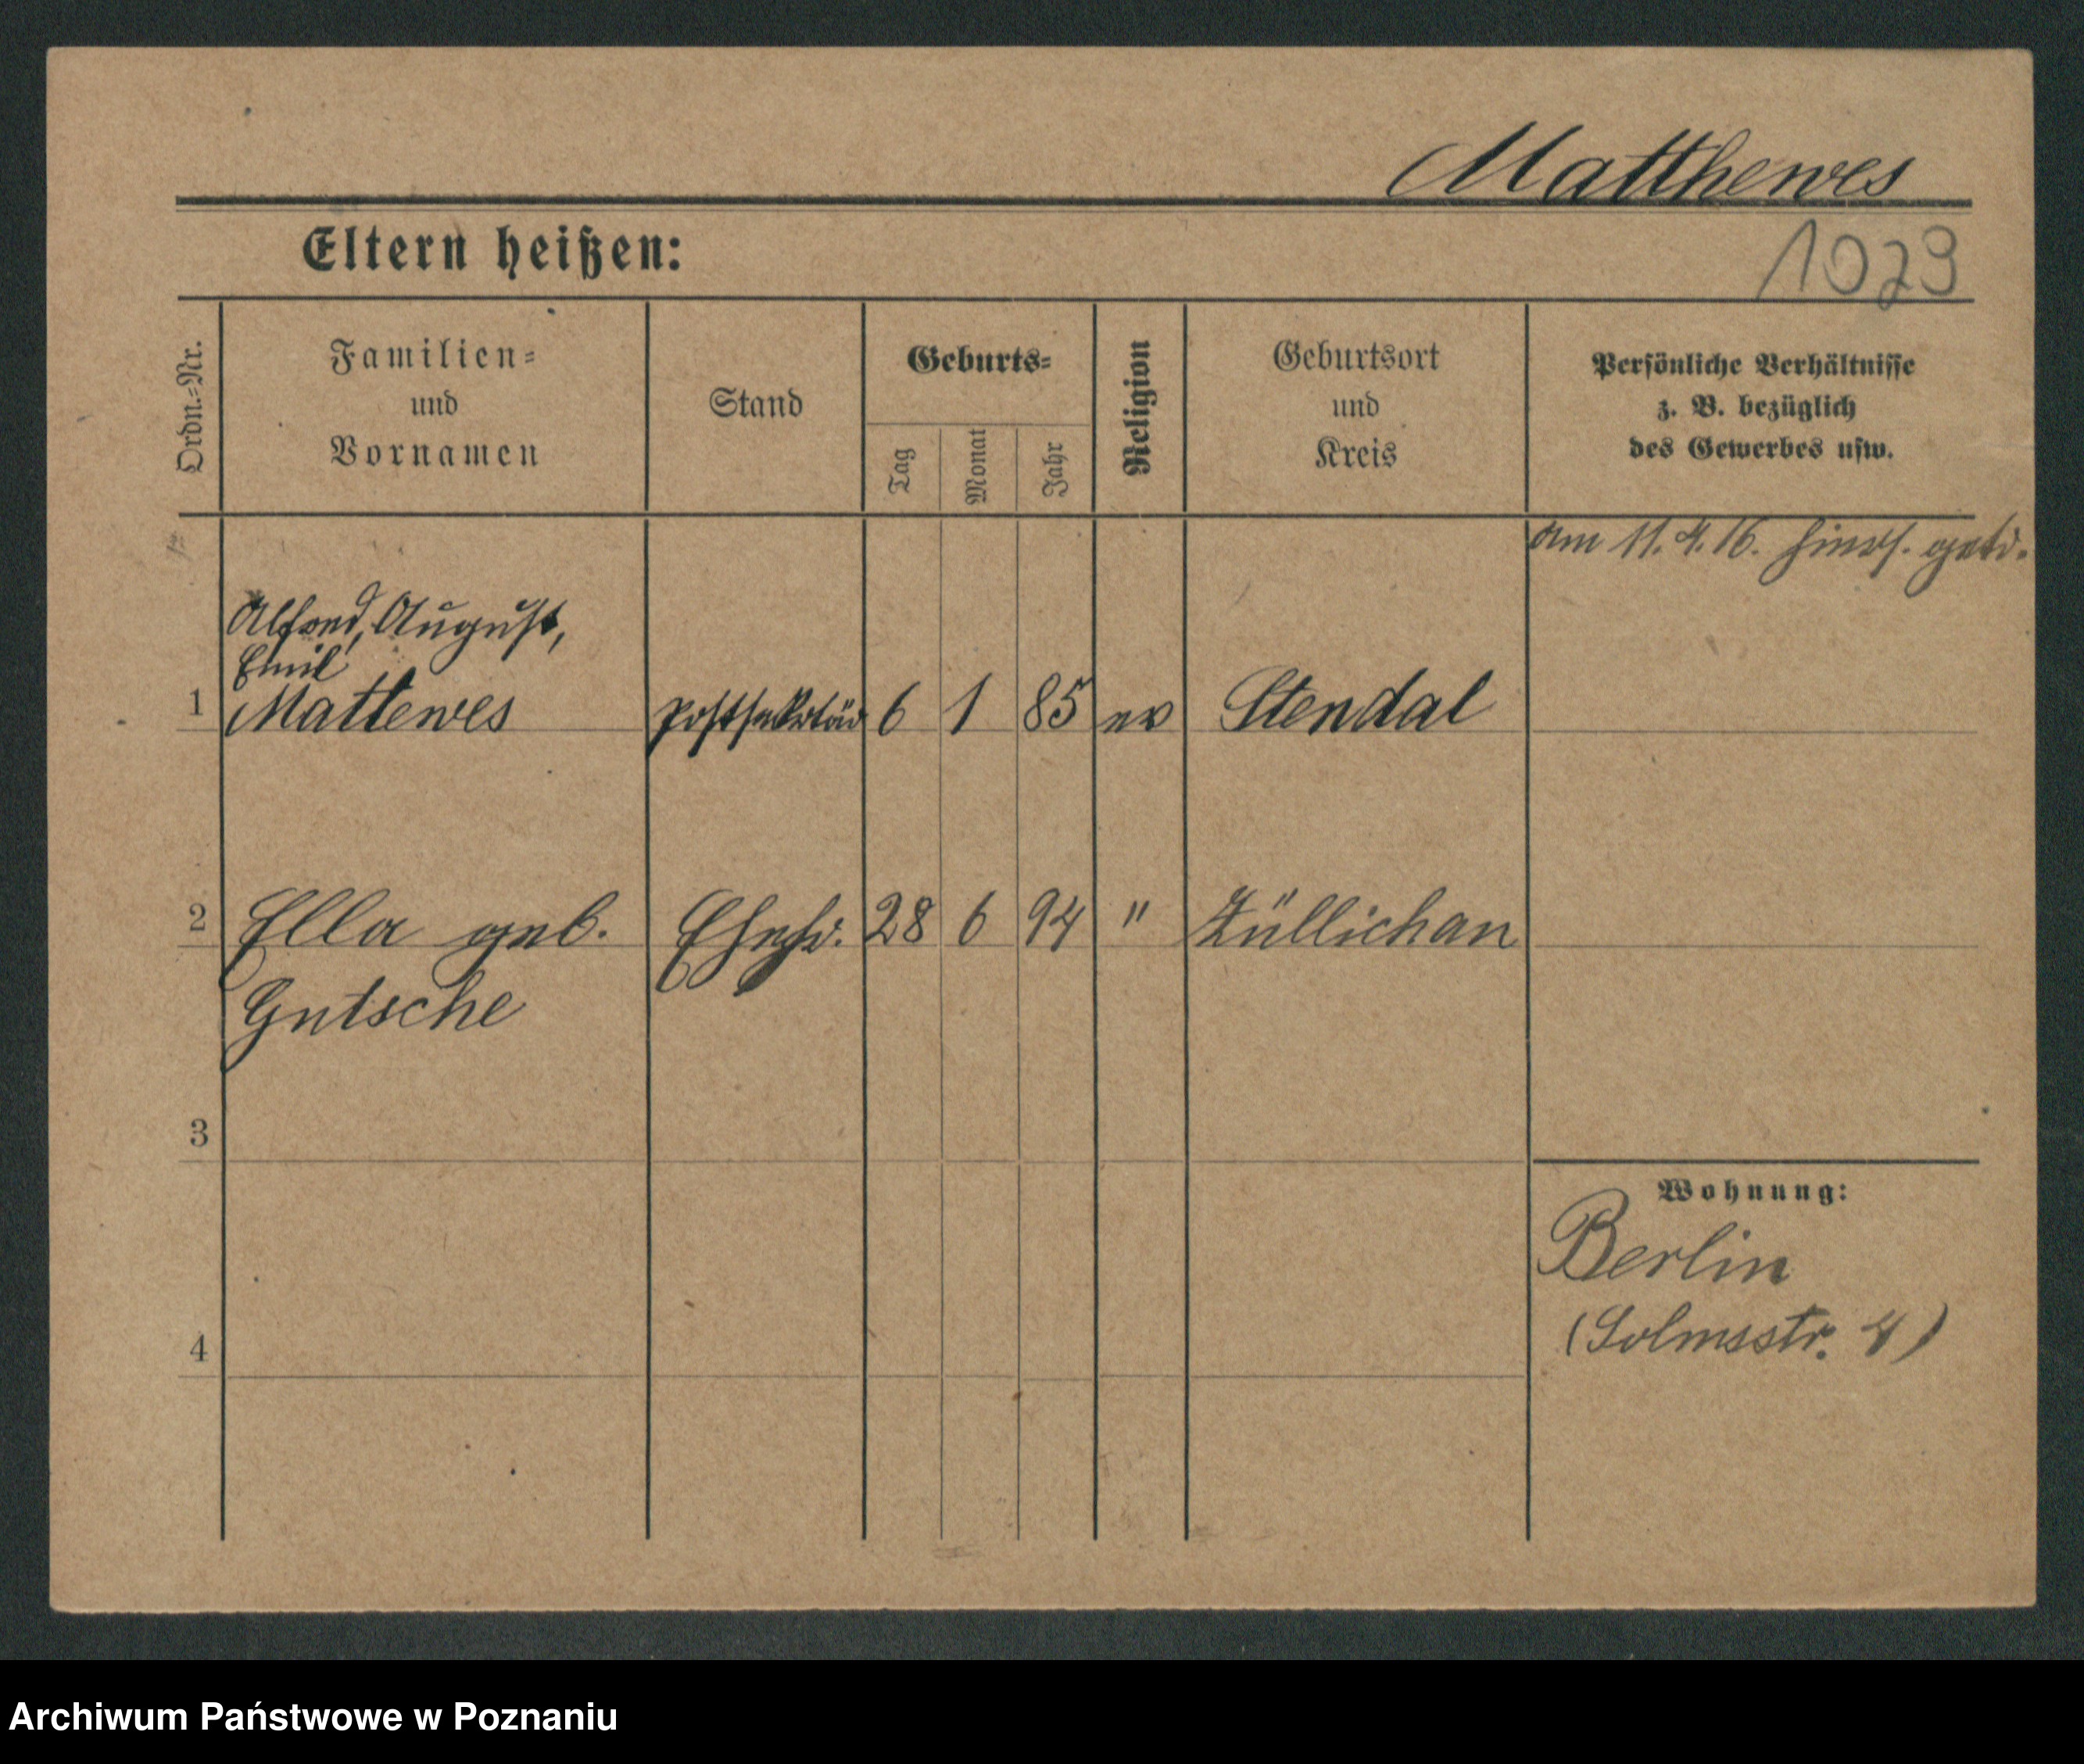 Matthewes
Eltern heißen:
1029
Ordn.-Nr.
Familien-
und
Vornamen
Stand
Geburts-
Tag
Monat
Jahr
Religion
Geburtsort
und
Kreis
Persönliche Verhältnisse
z. B. bezüglich
des Gewerbes usw.
am 11. 4. 16. hiers. getr.
Alfred, August,
Emil
1 Mattewes Postsekretär 6 1 85 ev Stendal
2 Ella geb. Ehefr. 28 6 94 " Züllichau
Gutsche
3
Wohnung:
Berlin
(Solmsstr. 4)
4
Archiwum Państwowe w Poznaniu